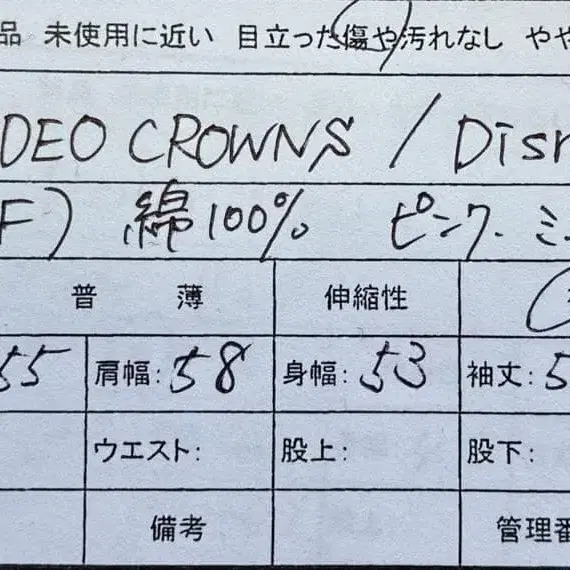 品 未使用に近い 目立った傷や汚れなし やや
DEO CROWNS / Disn
F) 綿100% ピンク・ミ
普 薄 伸縮性
55 肩幅:58 身幅:53 袖丈:5
ウエスト: 股上: 股下:
備考 管理番